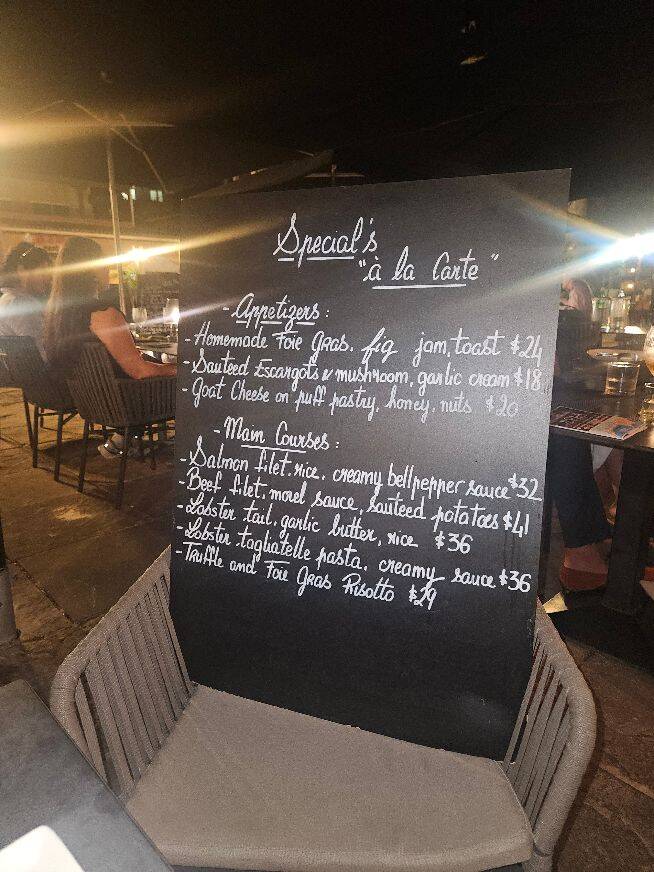 Special's
"à la Carte"
- Appetizers :
- Homemade Foie gras, fig jam, toast $24
- Sauteed Escargots & mushroom, garlic cream $18
- Goat Cheese on puff pastry, honey, nuts $20
- Main Courses :
- Salmon filet, rice, creamy bellpepper sauce $32
- Beef filet, morel sauce, sauteed potatoes $41
- Lobster tail, garlic butter, rice $36
- Lobster tagliatelle pasta, creamy sauce $36
- Truffle and Foie Gras Risotto $29